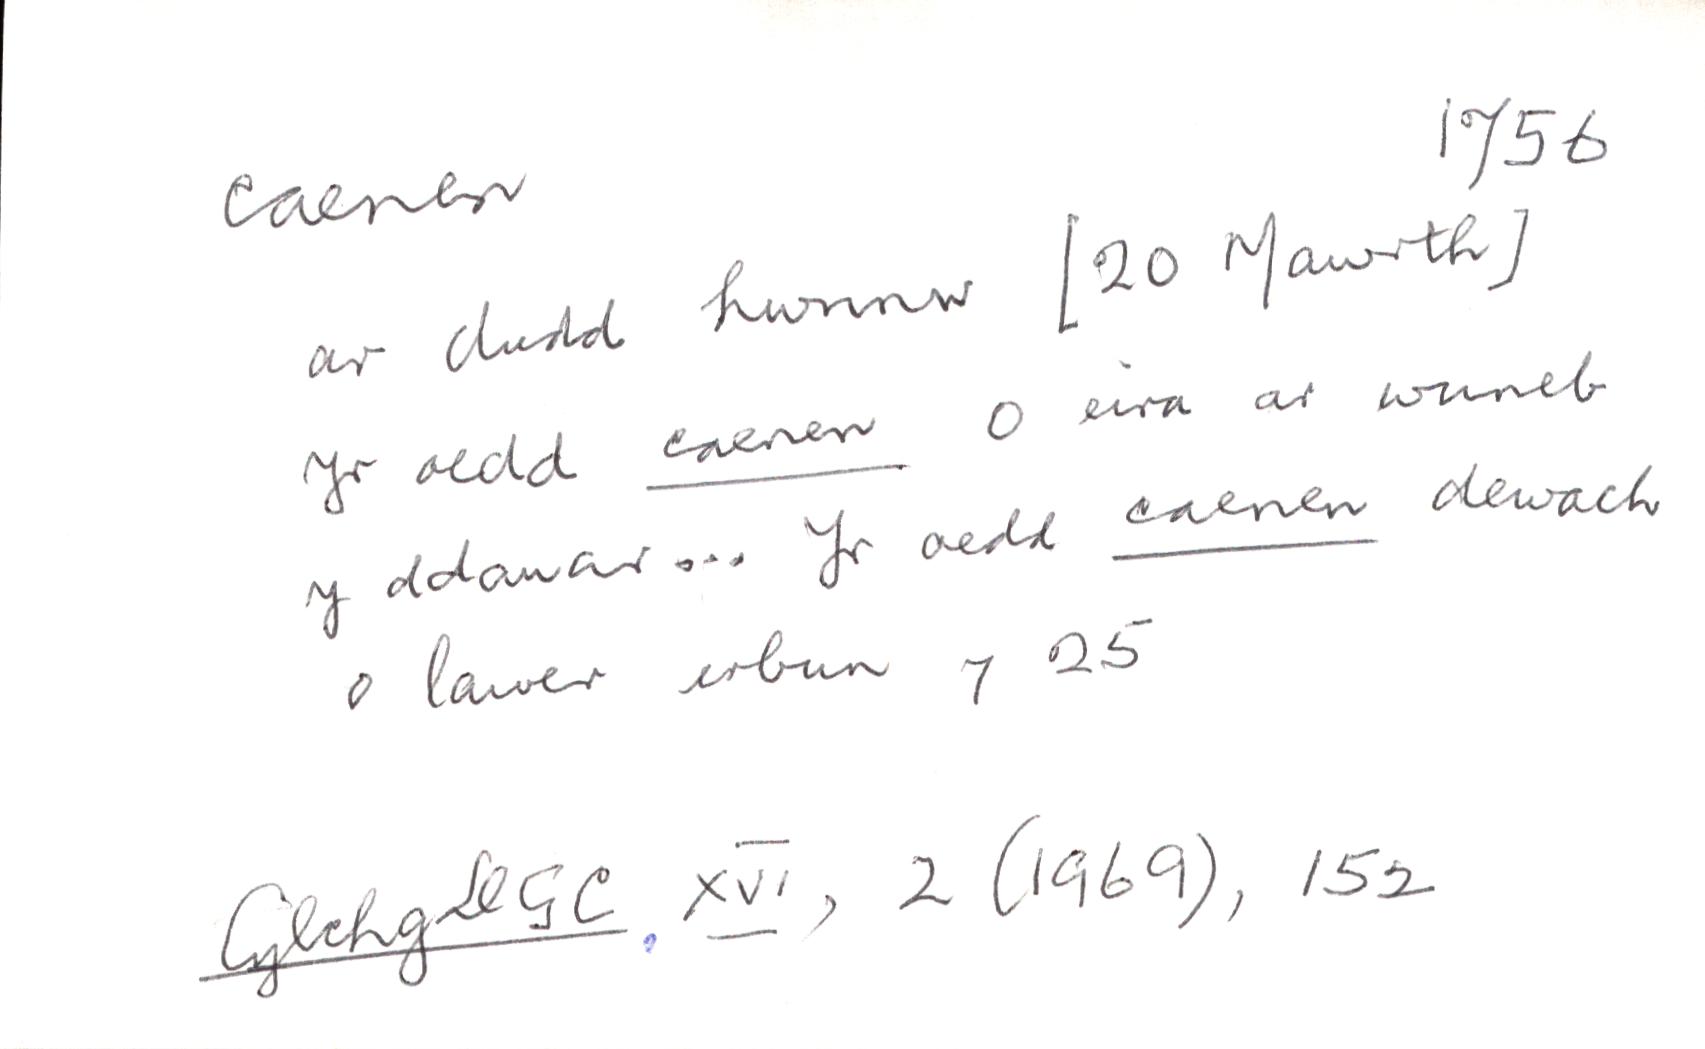 1756
caenen
ar dudd hwnnw [20 Mawrth]
Yr oedd caenen o eira ar wuneb
y ddauar... Yr oedd caenen dewach
o lawer erbun y 25
Cylchg LlGC. XVI, 2 (1969), 152